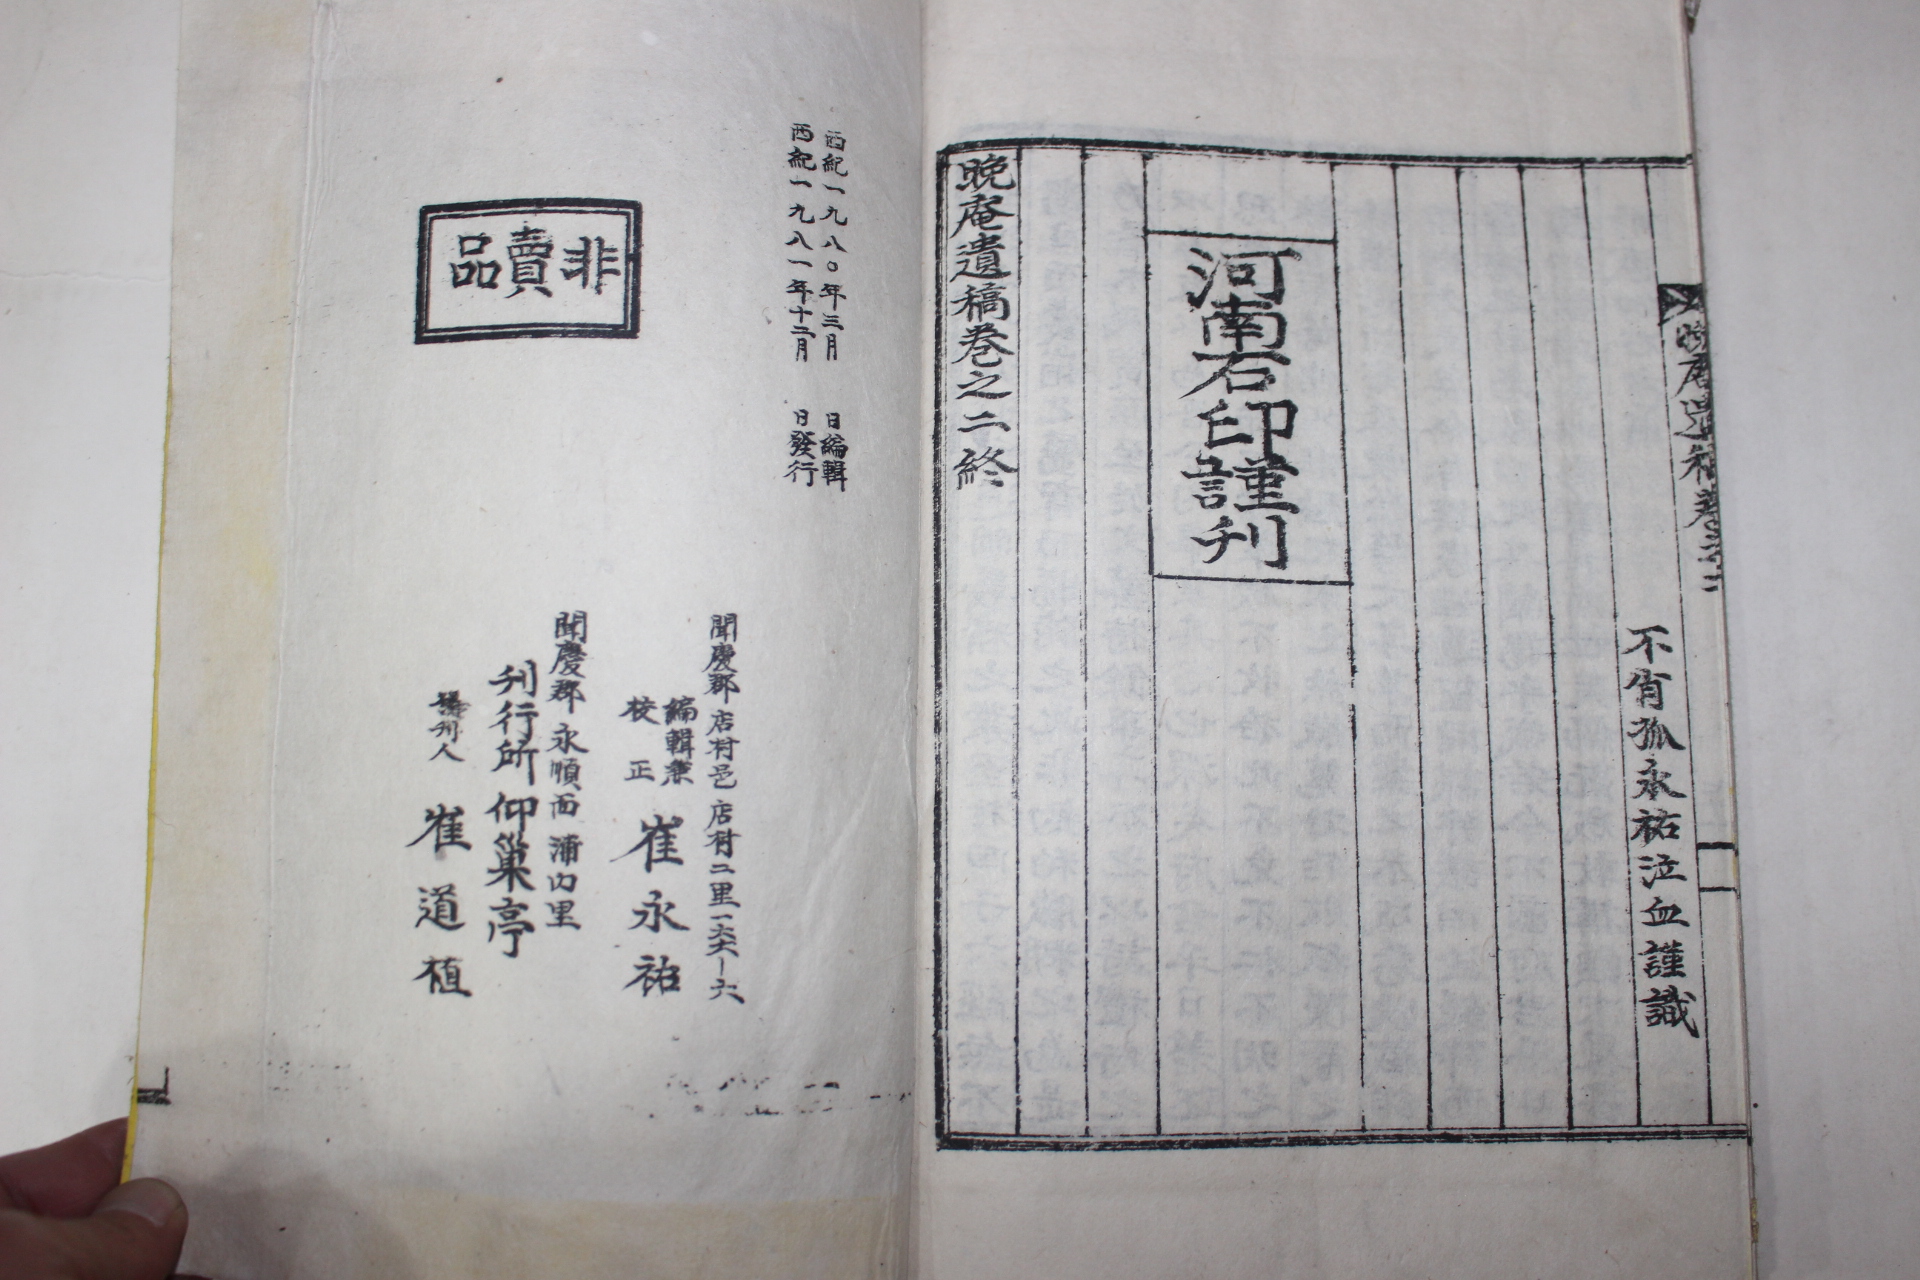 不肖孤永祐泣血謹識
河南石印謹刊
晚庵遺稿卷之二終
西紀一九八〇年三月 日編輯
西紀一九八一年十二月 日發行
非賣品
聞慶郡店村邑店村二里一六六-六
編輯兼
校正
崔永祐
聞慶郡永順面浦內里
刊行所仰巢亭
刊人 崔道植